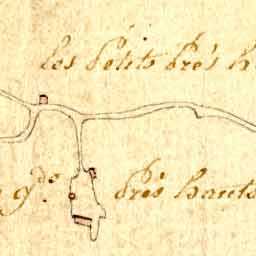 les petits prés h
gde. prés hauts